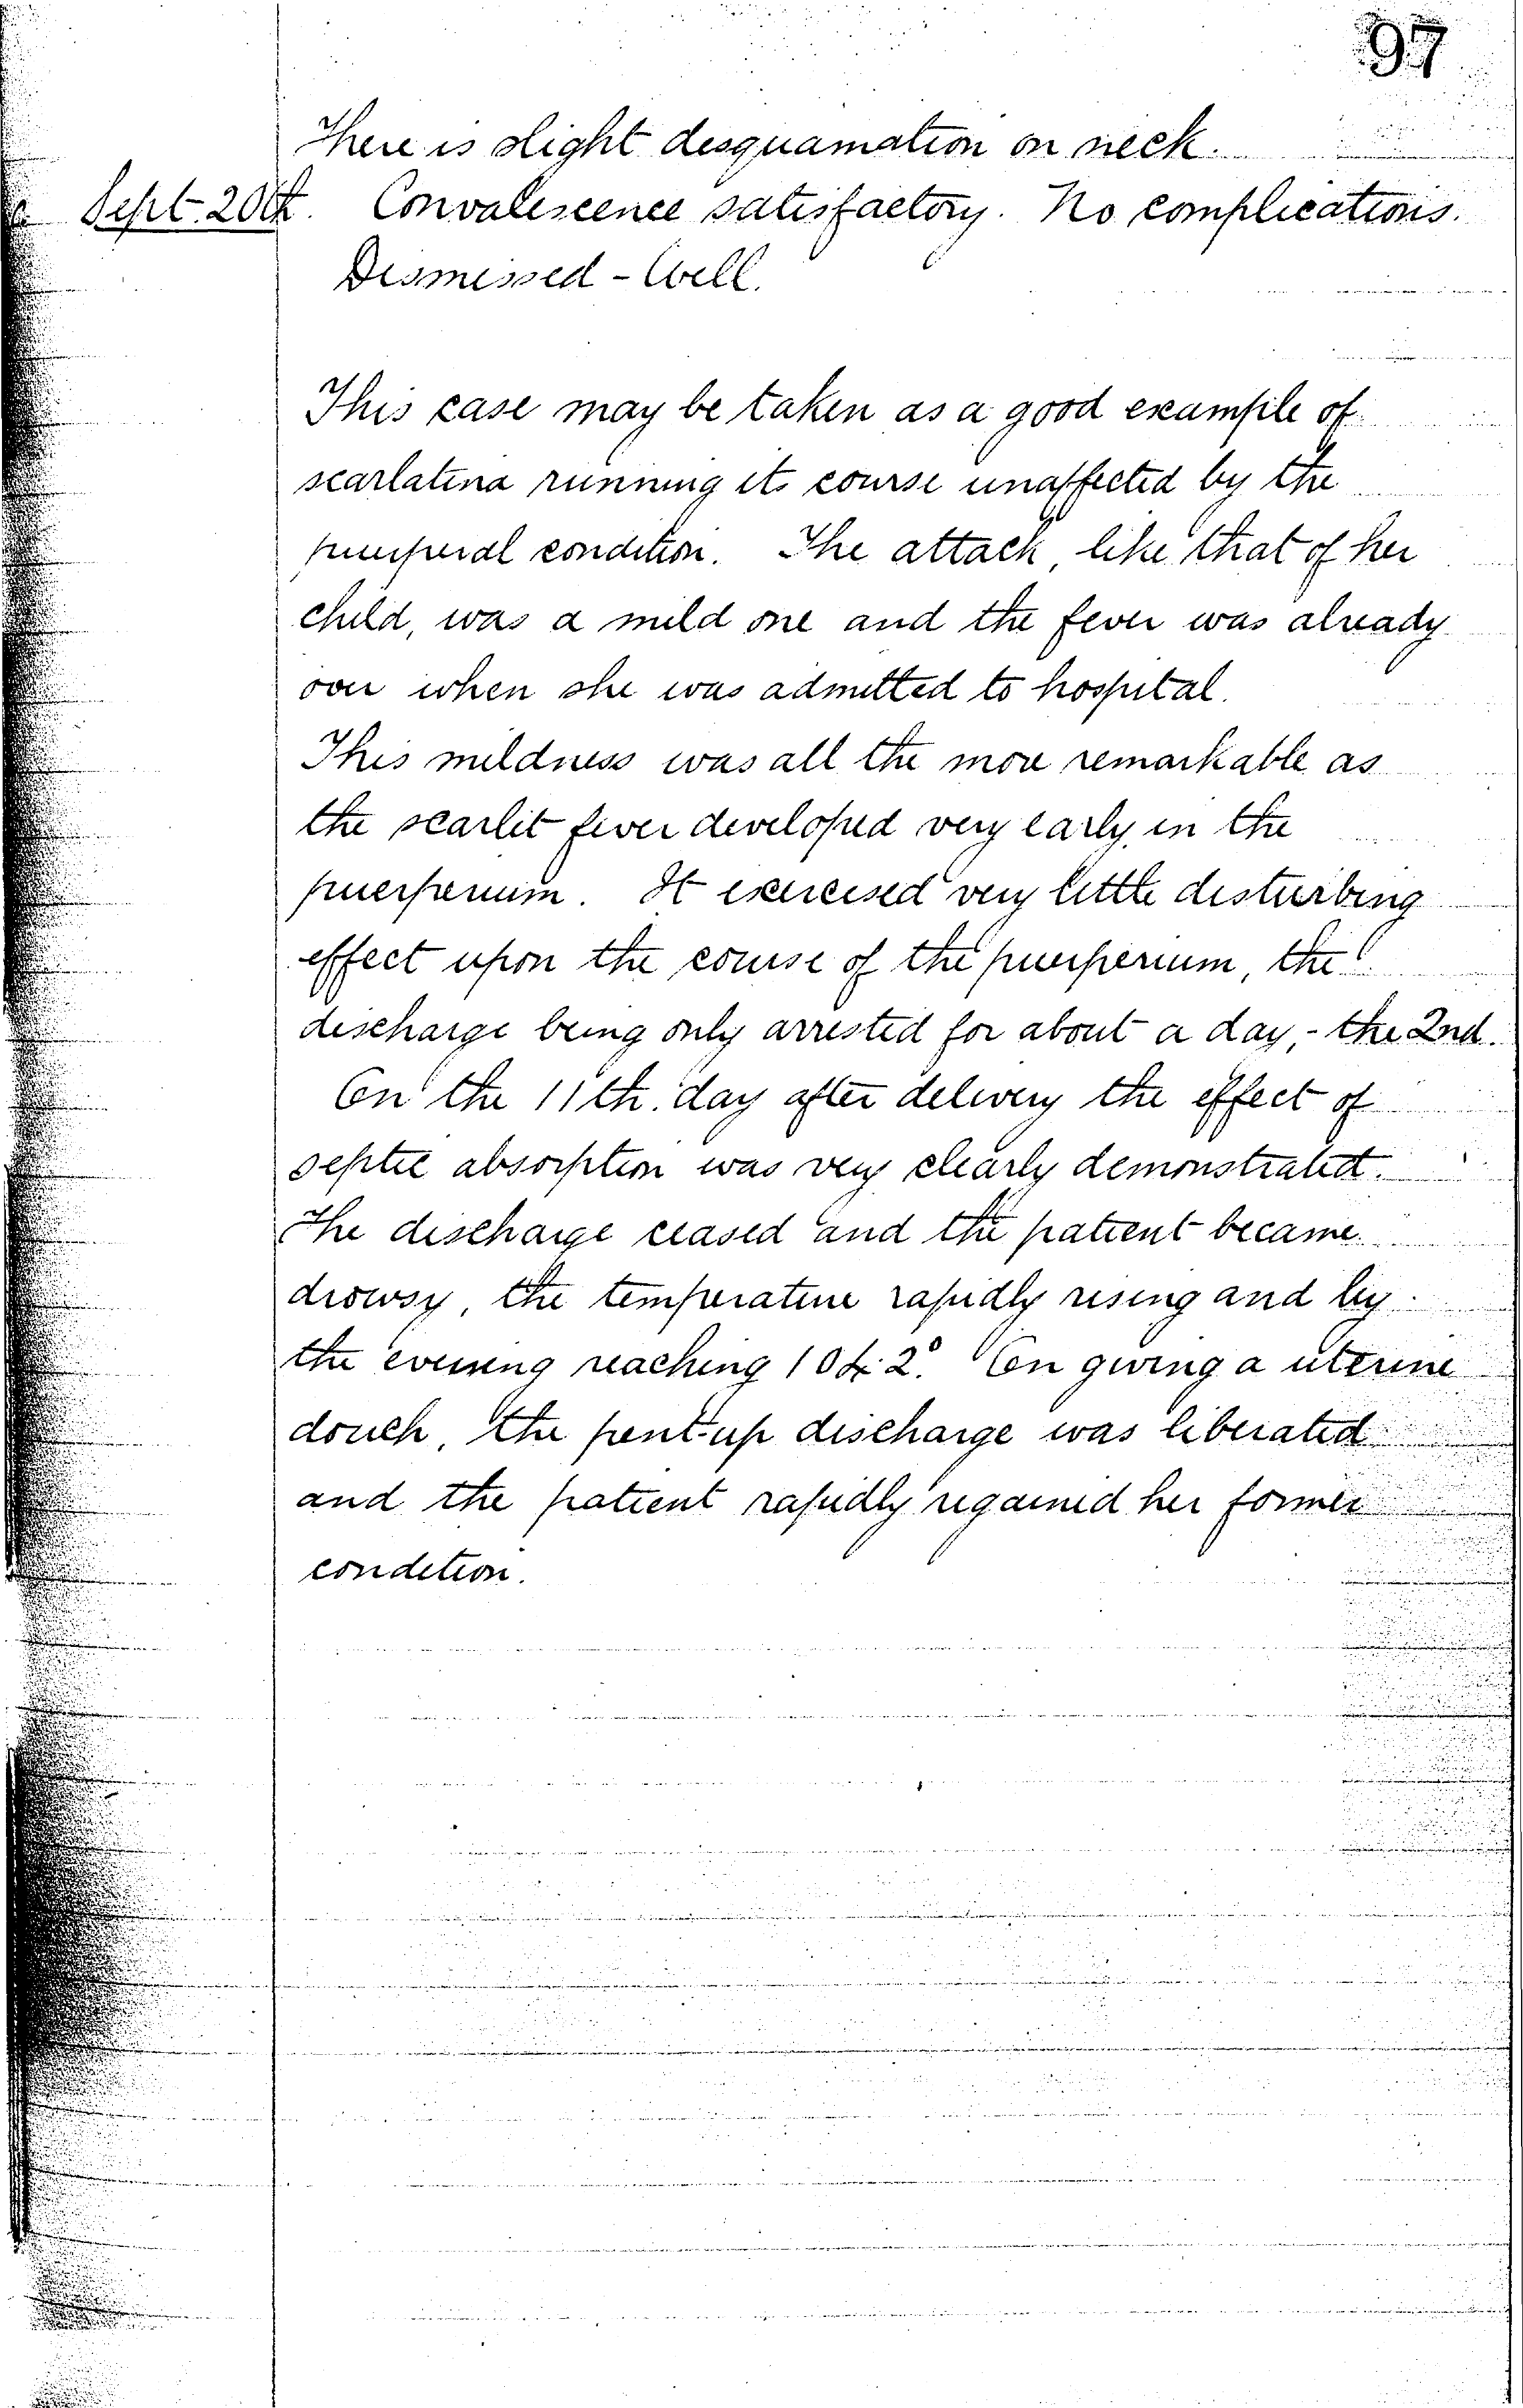 97
There is slight desquamation on neck.
Sept. 20th. Convalescence satisfactory. No complications.
Dismissed - Well.
This case may be taken as a good example of
scarlatina running its course unaffected by the
puerperal condition. The attack, like that of her
child, was a mild one and the fever was already
over when she was admitted to hospital.
This mildness was all the more remarkable as
the scarlet fever developed very early in the
puerperium. It exercised very little disturbing
effect upon the course of the puerperium, the
discharge being only arrested for about a day, - the 2nd.
On the 11th. day after delivery the effect of
septic absorption was very clearly demonstrated.
The discharge ceased and the patient became
drowsy, the temperature rapidly rising and by
the evening reaching 104.2°. On giving a uterine
douch, the pent-up discharge was liberated
and the patient rapidly regained her former
condition.